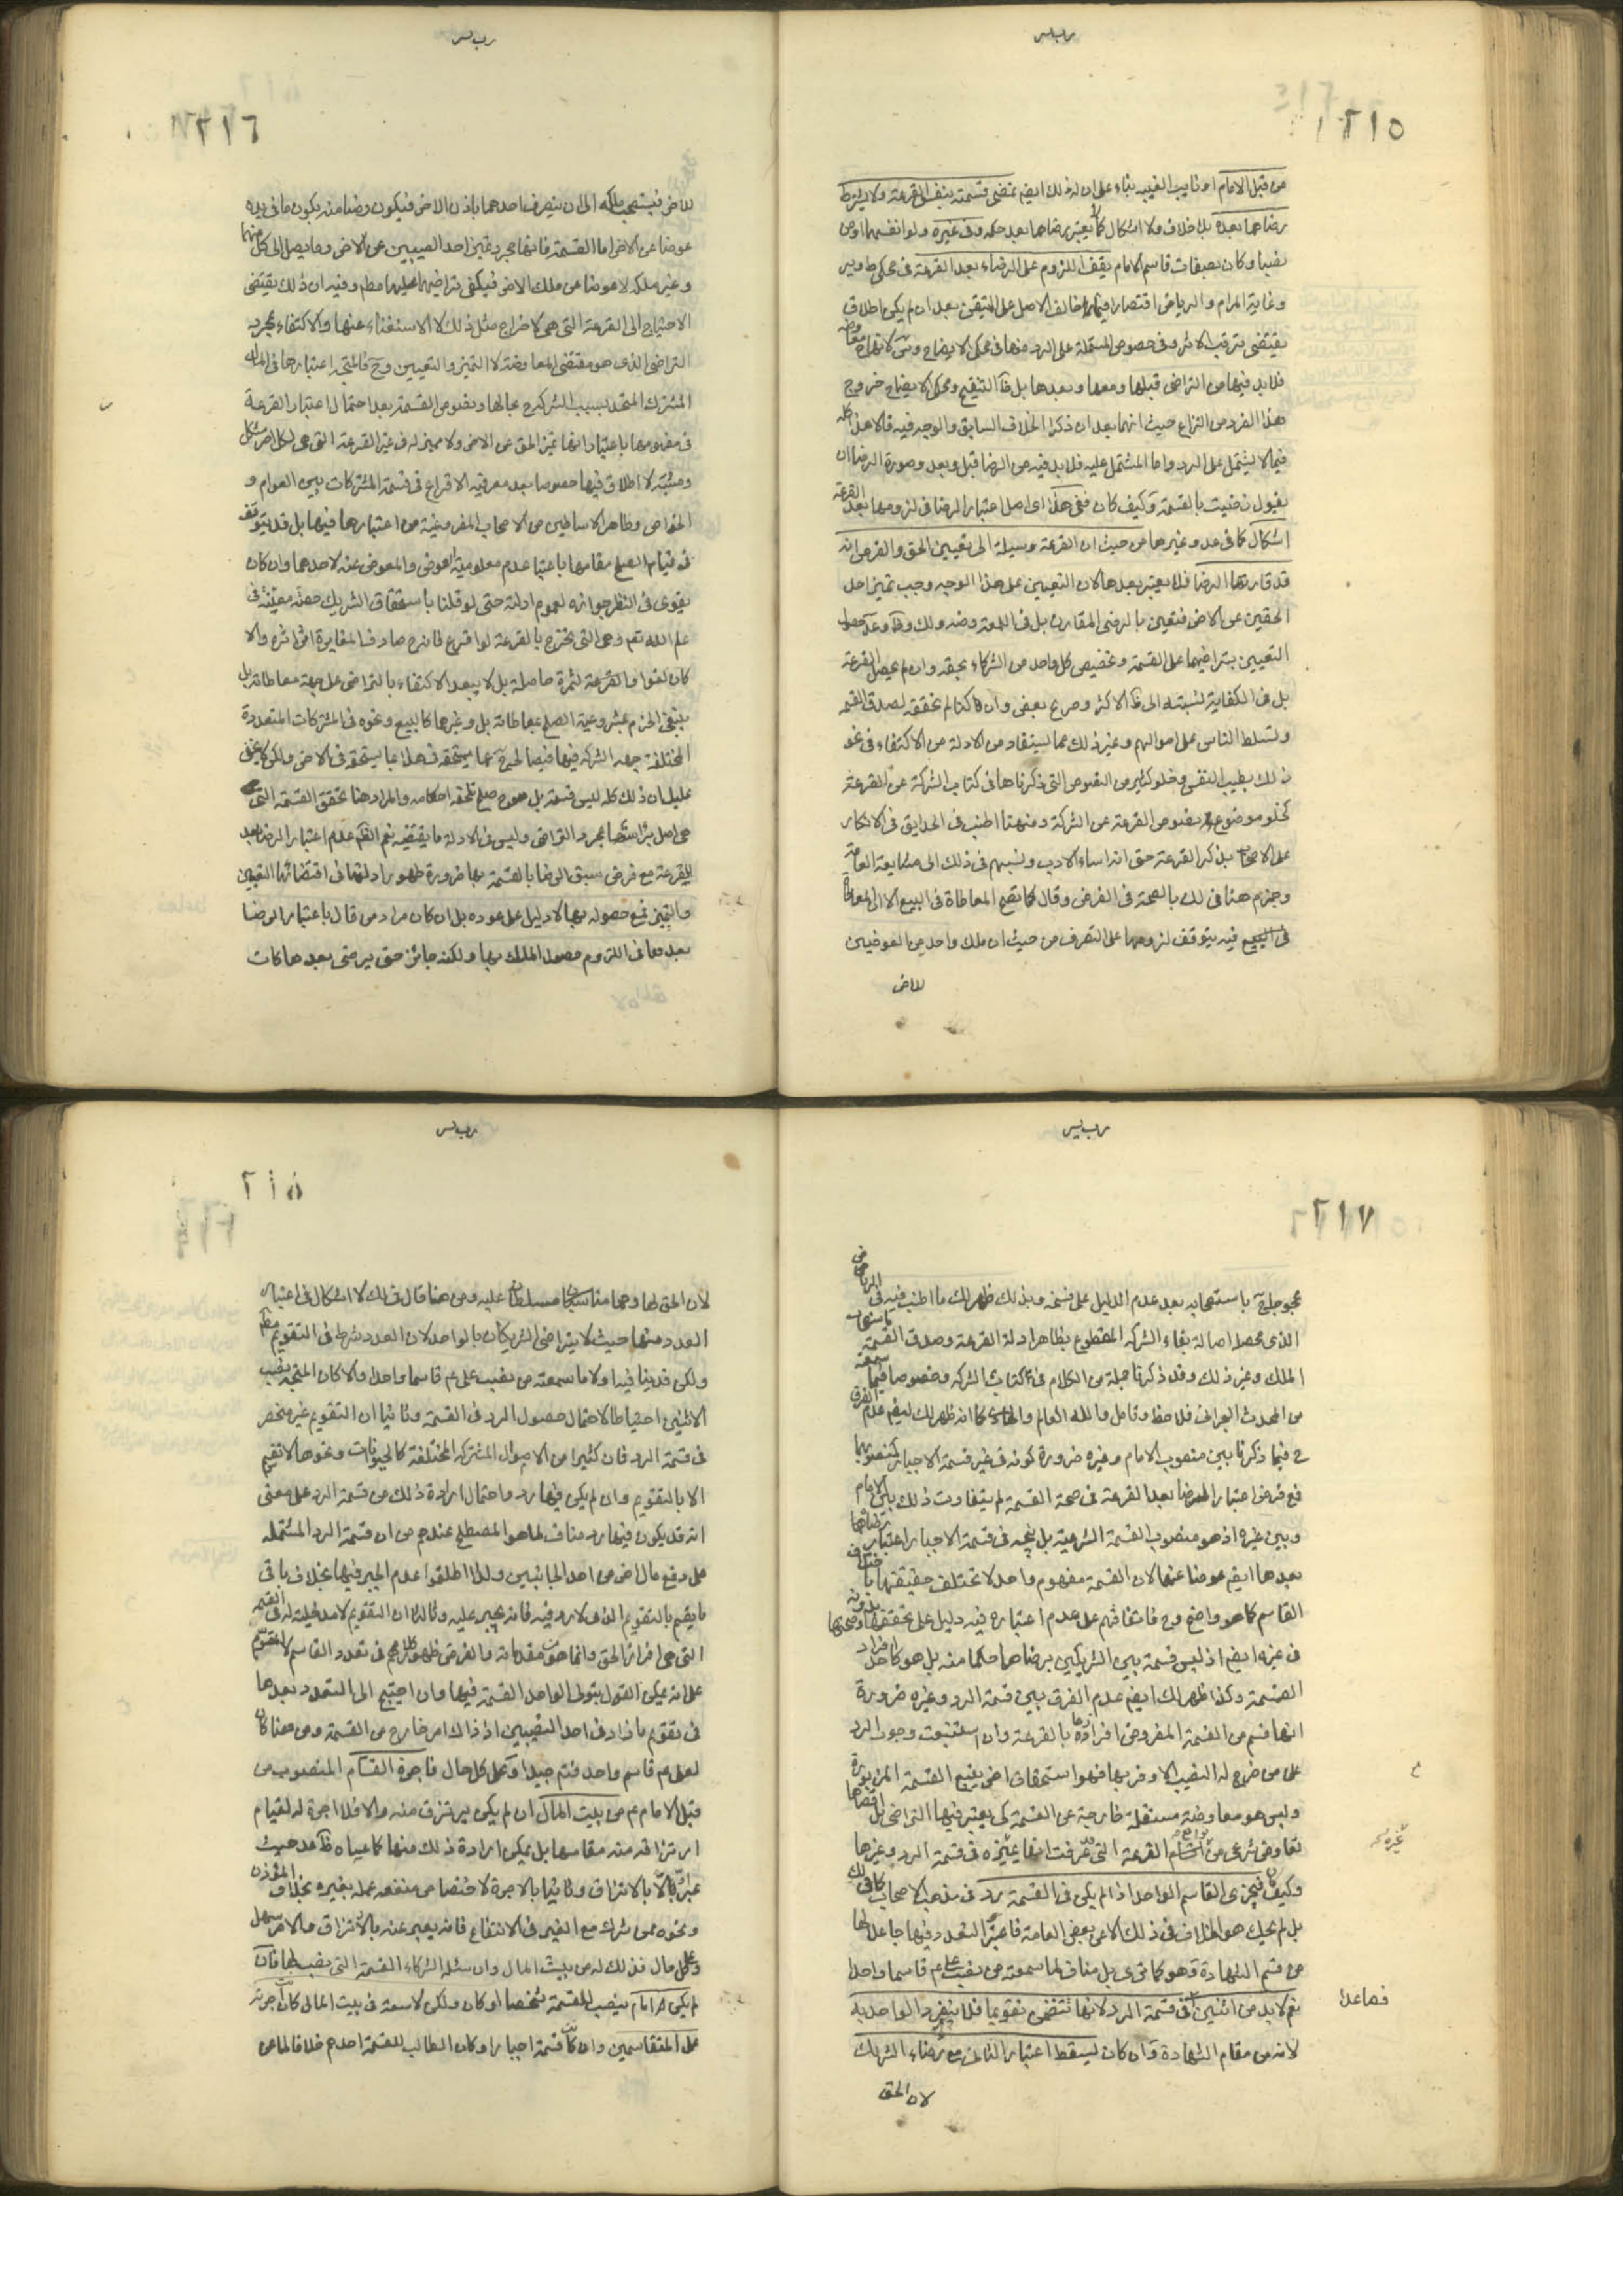 ٢١٥
من قبل الامام او نايب الغيبه بناء على ان له ذلك ايضم تمضى قسمته بنفس القرعة ولا يشترط
رضاهما بعده بلا خلاف ولا اشكال كما لا يعتبر رضاهما بعد حكمه وفى غيره ولو انفسهما او من
نصبا وكان بصفات قاسم الامام يقف اللزوم على الرضاء بعد القرعة فى محكى ط وير
وغاية المرام والرياض اقتصارا فيما خالف الاصل على المتيقن بعد ان لم يكن اطلاق
يقتضى ترتب الاثر وفى خصوص المشتملة على الرد منها فى محكى الايضاح وس لانها معاوضة
فلا بد فيها من التراضى قبلها ومعها وبعدها بل ظ التنقيح ومحكى الايضاح خروج
هذا الفرد من النزاع حيث انهما بعد ان ذكرا الخلاف السابق والوجه فيه قالا هذا كله
فيما لا يشتمل على الرد واما المشتمل عليه فلا بد فيه من الرضا قبل وبعد وصورة الرضا ان
يقول رضيت بالقسمة وكيف كان ففى هذا اى اصل اعتبار الرضا فى لزومها بعد القرعة
اشكال كما فى عد وغيرها من حيث ان القرعة وسيلة الى تعيين الحق والفرض انه
قد قارنها الرضا فلا يعتبر بعدها لان التعيين على هذا الوجه وجب تميز احد
الحقين عن الاخر فتعين بالرضى المقارن بل فى اللمعة وضه ولك وظ وعد حصول
التعيين بتراضيهما على القسمة وتخصيص كل واحد من الشركاء بحقه وان لم يحصل القرعة
بل فى الكفاية نسبته الى ظ الاكثر وصرح بعضى وان قا كنا لم نحققه لصدق القسمة
وتسلط الناس على اموالهم وغير ذلك مما يستفاد من الادلة من الاكتفاء فى نحو
ذلك بطيب النفس وخلو كثير من النصوص التى ذكرناها فى كتاب الشركة عن القرعة
كخلو موضوع نصوص القرعة عن الشركة ومنهنا اطنب فى الحدايق فى الانكار
على الاصحاب بذكر القرعة حتى انه اساء الادب ونسبهم فى ذلك الى متابعة العامة
وجزم هنا فى لك بالصحة فى الفرض وقال كما تصح المعاطاة فى البيع الا ان المعاطاة
فى البيع فيه يتوقف لزومها على التصرف من حيث ان ملك واحد من العوضين
للاخر
٢١٦
للاخر فيستصحب ملكه الى ان يتصرف احدهما باذن الاخر فيكون رضا منه بكون ما فى يده
عوضا عن الاخر اما القسمة فانها مجرد تميز احد النصيبين عن الاخر وما يصل الى كل منهما
وعين ملكه لا عوضا عن ملك الاخر فيكفى تراضيهما عليها مطم وفيه ان ذلك يقتضى
الاحتياج الى القرعة التى هى لاخراج مثل ذلك لا الاستغناء عنها والاكتفاء بمجرد
التراضى الذى هو مقتضى المعاوضة لا التميز والتعيين وح فالمتجه اعتبارها فى المال
المشترك المتحد بسبب الشركة بحالها ونصوص القسمة بعد احتمال اعتبار القرعة
فى مفهومها باعتبار انها تميز الحق عن الاخر ولا مميز له فى غير القرعة التى هى لكل امر مشكل
ومشتبه لا اطلاق فيها خصوصا بعد معروفية الاقراع فى قسمة المشتركات بين العوام و
الخواص وظاهر الاساطين من الاصحاب المفروغية من اعتبارها فيها بل قد يتوقف
فى قيام الصلح مقامها باعتبار عدم معلومية العوض والمعوض عنه لاحدهما وان كان
يقوى فى النظر جوازه لعموم ادلته حتى لو قلنا باستحقاق الشريك حصة معينة فى
علم الله تعم وهى التى تخرج بالقرعة لو اقرع فان صادف المغايرة اثر اثره والا
كان لغوا والقرعة لثمرة حاصلة بل لا يبعد الاكتفاء بالتراضى على جهة معاطاة بل
ينبغى الجزم بمشروعية الصلح بمعاطاته بل وغيرها كالبيع ونحوه فى المشتركات المتعددة
المختلفة جهه الشركه فيها فيصالحه عما يستحقه فى هذا بما يستحقه فى الاخر ولكن لا يخفى
عليك ان ذلك كله ليس قسمة بل هو صلح تلحقه احكامه والمراد هنا تحقق القسمة التى
هى اصل براسها بمجرد التراضى وليس فى الادلة ما يقتضيه نعم الظم عدم اعتبار الرضا بعد
القرعة مع فرض سبق الرضا بالقسمة بها ضرورة ظهور ادلتها فى اقتضائها التعيين
والتميز فمع حصوله بها لا دليل على عوده بل ان كان مراد من قال باعتبار الرضا
بعدها فى اللزوم حصول الملك بها ولكنه جائز حتى يرضى بعدها كان
٢١٧
محجوجا باستصحابه بعد عدم الدليل على فسخه وبذلك ظهر لك ما اطنب فيه فى الرياض
الذى محصله اصالة بقاء الشركة المقطوع بظاهر ادلة القرعة وصدق القسمة
الملك وغير ذلك وقد ذكرنا جملة من الكلام فى كتاب الشركه وخصوصا فيما سمعته
من المحدث البحرانى فلاحظ وتامل والله العالم كما انه ظهر لك ايضم عدم الفرق
ح فيما ذكرنا بين منصوب الامام وغيره ضرورة كونه فى غير قسمة الاجبار كمنصوبهما
فمع فرض اعتبار الرضا بعد القرعة فى صحة القسمة لم يتفاوت ذلك بين الامام
وبين غيره اذ هو منصوب للقسمة الشرعية بل يتجه فى قسمة الاجبار اعتبار رضاهما
بعدها ايضم عوضا عنها لان القسمة مفهوم واحد لا تختلف حقيقتها باختلاف
القاسم كما هو واضح وح فاتفاقهم على عدم اعتباره فيه دليل على تحققها وصحتها بدونه
فى غيره ايضم اذ ليس قسمة بين الشريكين برضاهما حكما منه بل هو كاحد افراد
القسمة وكذا ظهر لك ايضم عدم الفرق بين قسمة الرد وغيره ضرورة
انها قسم من القسمة المفروض افرازها بالقرعة وان استتبعت وجوب الرد
على من خرج له النصيب الاوفر بها فهو استحقاق اخر يتبع القسمة المزبورة
وليس هو معاوضة مستقلة خارجة عن القسمة كى يعتبر فيها التراضى بل اقصاها
تعاوض شرعى من توابع القرعة التى عرفت انها مميزة فى قسمة الرد وغيرها
وكيف كان فيجزى القاسم الواحد اذا لم يكن فى القسمة رد فى مذهب الاصحاب كما فى لك
بل لم يحك هو الخلاف فى ذلك الا عن بعض العامة فاعتبر التعدد فيها جاعلا لها
من قسم الشهادة وهو كما ترى بل مناف لما سمعته من نصب على عم قاسما واحدا
نعم لا بد من اثنين فى قسمة الرد لانها تتضمن تقويما فلا ينفرد الواحد به
فصاعدا
لانه من مقام الشهادة وان كان يسقط اعتبار الثانى مع رضاء الشريك
لان الحق
٢١٨
لان الحق لهما وهما متاسبان مسلطان عليه ومن هنا قال فى لك لا اشكال فى اعتبار
العدد منهما حيث لا يتراضى الشريكان بالواحد لان العدد شرط فى التقويم مطم
ولكن قد ينافيه اولا ما سمعته من نصب على عم قاسما واحدا والا كان المتجه نصب
الاثنين احتياطا لاحتمال حصول الرد فى القسمة وثانيا ان التقويم غير منحصر
فى قسمة الرد فان كثيرا من الاموال المشتركه المختلفة كالحيوانات ونحوها لا تقسم
الا بالتقويم وان لم يكن فيها رد واحتمال ارادة ذلك من قسمة الرد على معنى
انه قد يكون فيها رد مناف لما هو المصطلح عندهم من ان قسمة الرد المشتملة
على دفع مال اخر من احد الجانبين ولذا اطلقوا عدم الجبر فيها بخلاف باقى
ما يقسم بالتقويم الذى لا رد فيه فانه يجبر عليه وثالثا ان التقويم لا مدخلية له فى القسمة
التى هى افراز الحق وانما هو من مقدماته والفرض ظهور كلامهم فى تعدد القاسم لا المقوم
على انه يمكن القول بتولى الواحد القسمة فيها وان احتيج الى التعدد بعدها
فى تقويم ما زاد فى احد النصيبين اذ ذاك امر خارج عن القسمة ومن هنا كان
لعلى عم قاسم واحد فتم جيدا وعلى كل حال فاجرة القسام المنصوب من
قبل الامام عم من بيت المال ان لم يكن يرتزق منه والا فلا اجرة له لقيام
ارتزاقه منه مقامها بل يمكن ارادة ذلك منها كما عساه ظ عد حيث
عبر اولا بالارتزاق وثانيا بالاجرة لاختصاص منفعه عمله بغيره بخلاف المؤذن
ونحوه ممن شرك مع الغير فى الانتفاع فانه يعبر عنه بالارتزاق والامر سهل
وعلى كل حال فذلك له من بيت المال وان سئله الشركاء القسمة التى نصب لها فان
لم يكن امام ينصب للقسمة شخصا او كان ولكن لا سعة فى بيت المال كان اجرته
على المتقاسمين وان كانت قسمة اجبارا وكان الطالب للقسمة احدهم خلافا لما عن